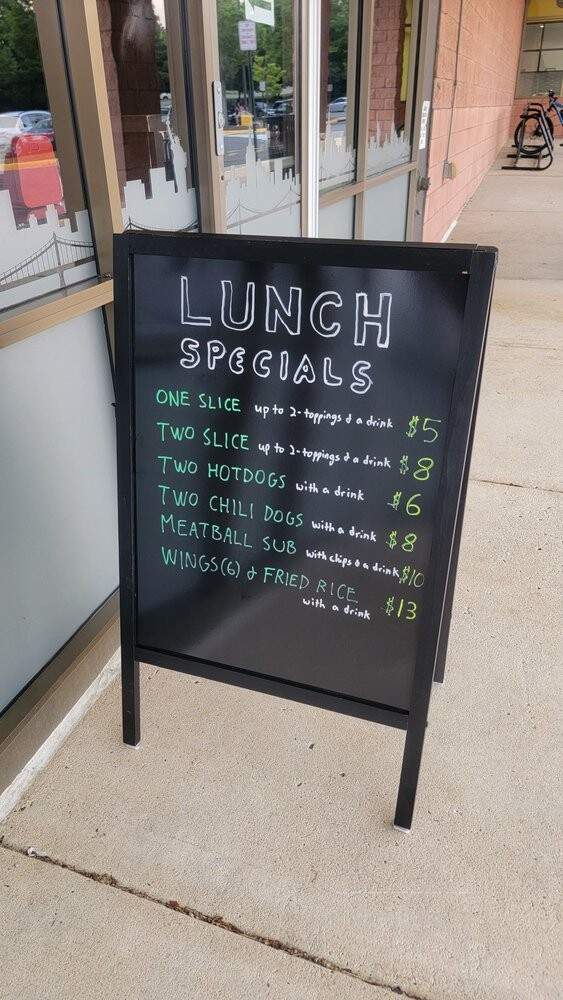 LUNCH
SPECIALS
ONE SLICE up to 2-toppings & a drink $5
TWO SLICE up to 2-toppings & a drink $8
TWO HOTDOGS with a drink $6
TWO CHILI DOGS with a drink $8
MEATBALL SUB with chips & a drink $10
WINGS(6) & FRIED RICE
with a drink $13